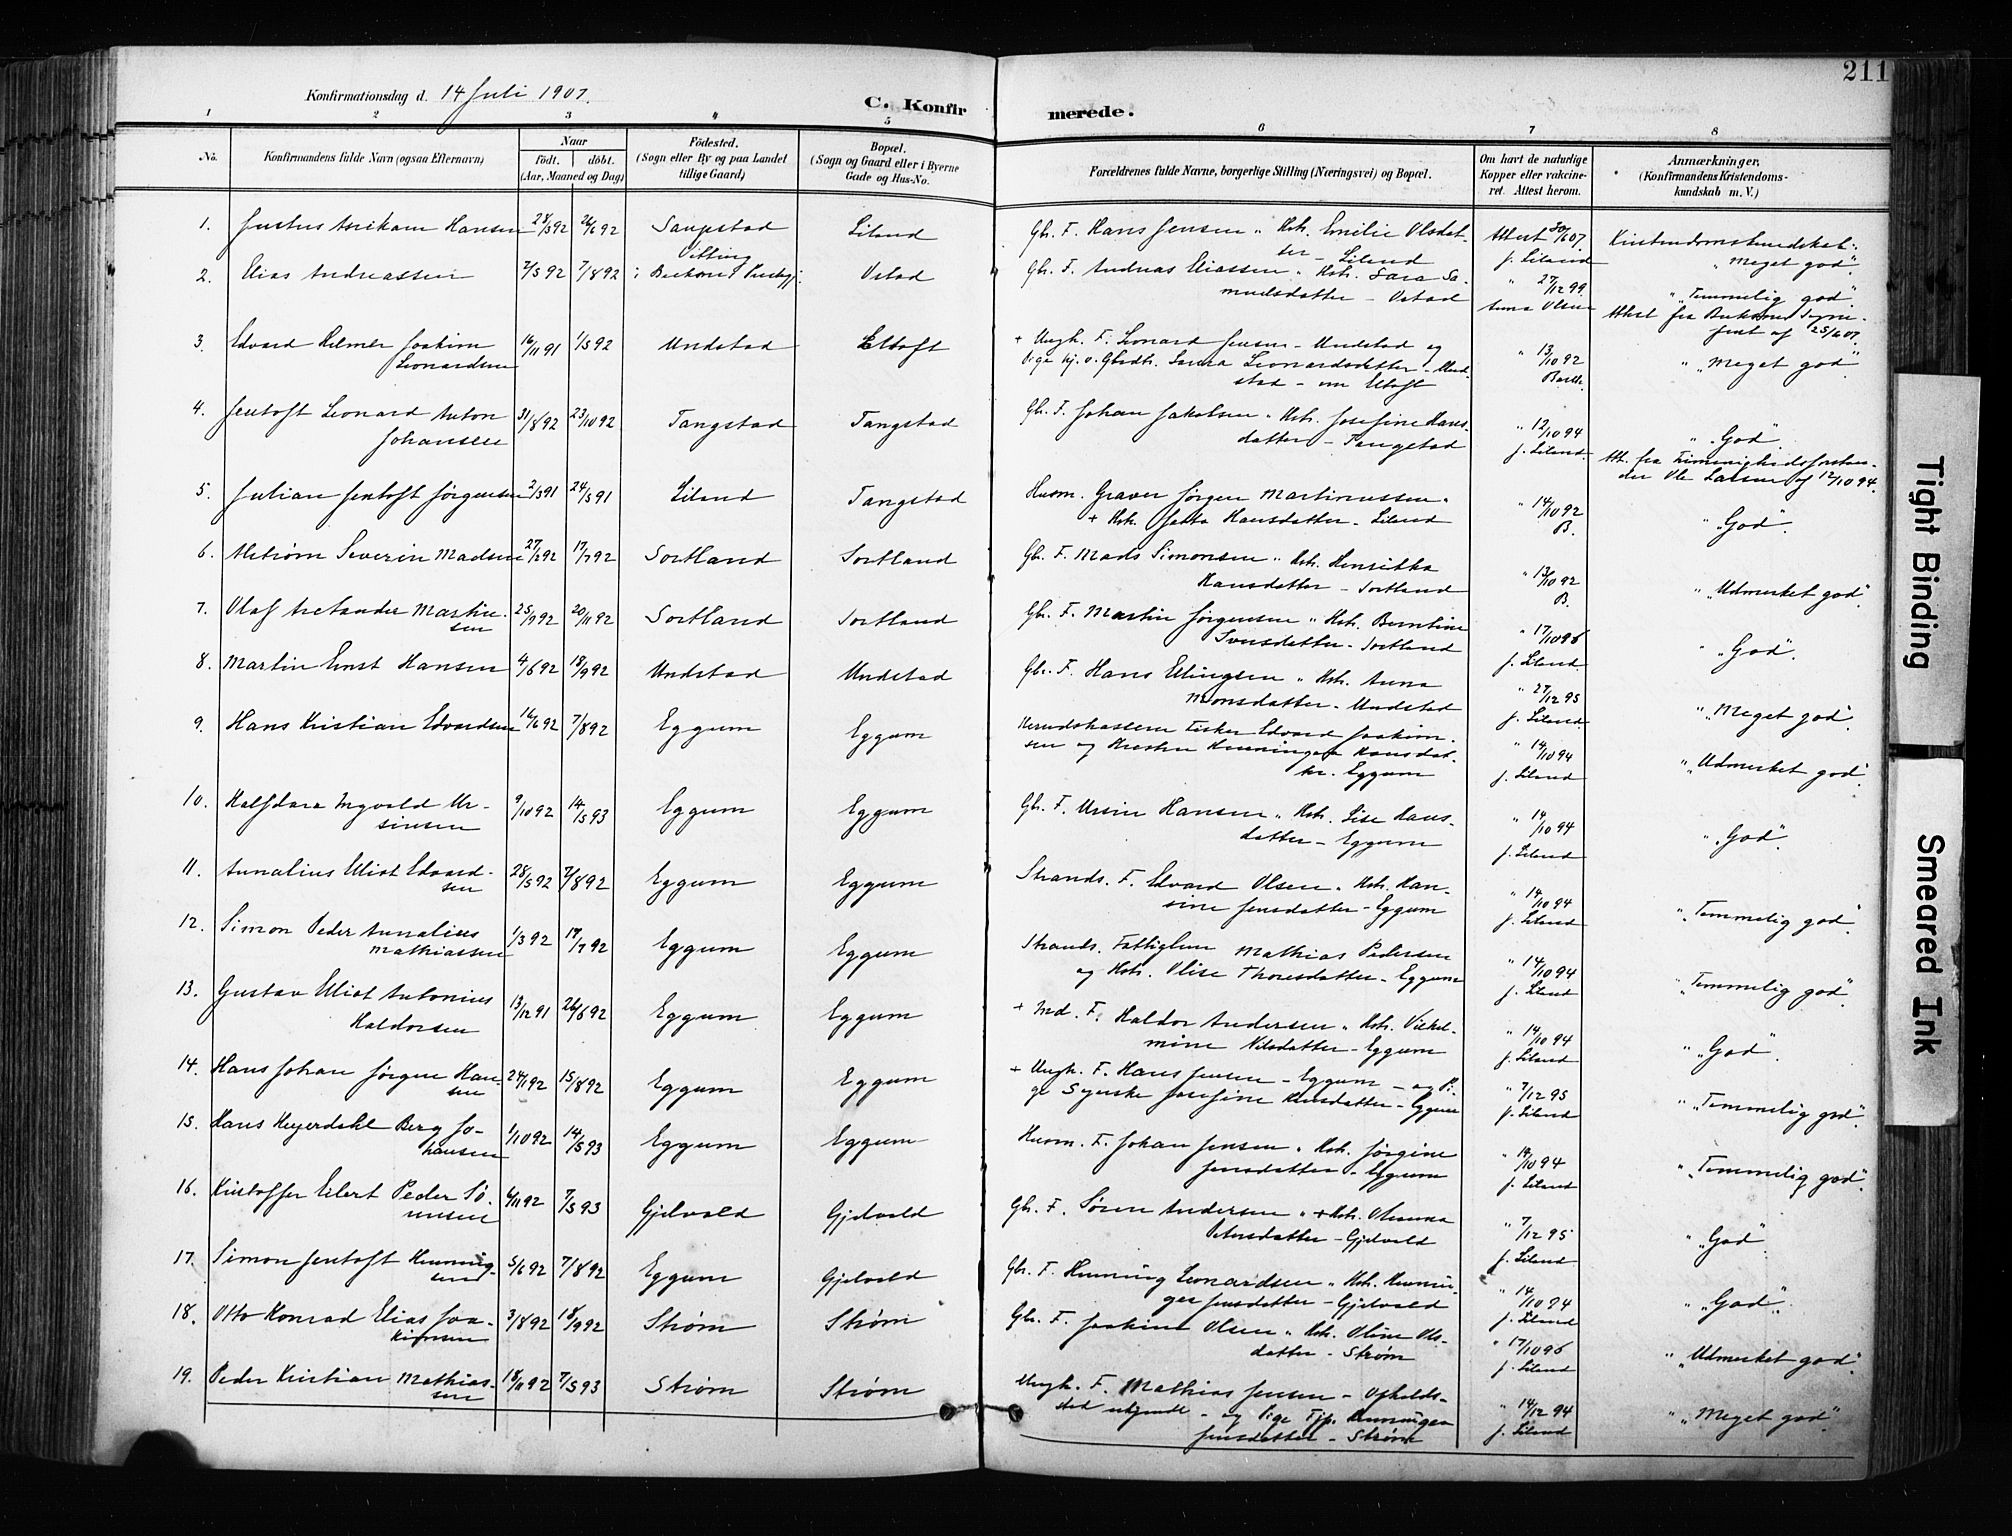 211
Konfirmationsdag d. 14 Juli 1907.
C. Konfirmerede.
1 2 3 4 5 6 7 8
No.
Konfirmandens fulde Navn (ogsaa Efternavn)
Naar
födt. döbt.
(Aar, Maaned og Dag)
Födested.
(Sogn eller By og paa Landet
tillige Gaard)
Bopæl.
(Sogn og Gaard eller i Byerne
Gade og Hus-No.
Forældrenes fulde Navne, borgerlige Stilling (Næringsvei) og Bopæl.
Om havt de naturlige
Kopper eller vaccine-
ret. Attest herom.
Anmærkninger,
(Konfirmandens Kristendoms-
kundskab m. V.)
1. Justus Hansen 28/3 92 26/6 92 Saupstad Liland Gbr. F. Hans Jensen " Hst. Emilie Olsdat-
ter - Liland Attest 30/6 07. J. Liland Kristendomskundskab:
"Meget god".
2. Elias Andreassen 7/5 92 7/8 92 i Buksnes Prestegj. Ustad Gbr. F. Andreas Eliassen " Hst. Sara Sa-
muelsdatter - Ustad " 27/12 99 Anna Olsen "Temmelig god".
Attest fra Buksnes Sogne-
prest af 25/6 07.
3. Edvard Hilmer Joakim
Leonardsen 16/11 91 1/5 92 Undstad Eltoft + Ungk. F. Leonard Jensen - Undstad og
Leonardsdatter - Und-
stad - nu Eltoft " 13/10 92 "Meget god".
4. Jentoft Leonard Anton
Johansen 31/8 92 23/10 92 Tangstad Tangstad Gbr. F. Johan Jakobsen " Hst. Josefine Hans-
datter - Tangstad " 12/10 94 J. Liland. "God".
Att. fra
Ole Larsen af 12/10 94.
5. Julian Jentoft Jørgensen 2/3 91 24/5 91 Liland Tangstad Husm. Graver Jørgen Martinussen "
+ Hst. Hansdatter - Liland " 14/10 92 B. "God".
6. Alstrøm Severin Madsen 27/2 92 17/7 92 Sortland Sortland Gbr. F. Mads Simonsen " Hst. Henrikka
Hansdatter - Sortland " 13/10 92 B. "Udmerket god".
7. Olaf Aretander Martin-
sen 25/9 92 20/11 92 Sortland Sortland Gbr. F. Martin Jørgensen " Hst. Berntine
Svensdatter - Sortland " 17/10 96 J. Liland "God".
8. Martin Ernst Hansen 4/6 92 18/9 92 Undstad Undstad Gbr. F. Hans Ellingsen " Hst. Anna
Monsdatter - Undstad " 27/12 95 J. Liland "Meget god".
9. Hans Kristian Edvardsen 16/6 92 7/8 92 Eggum Eggum Fisker Edvard Joakim-
sen og Hustru Henningea Hansdat-
ter. Eggum " 14/10 94 J. Liland "Udmerket god".
10. Halfdan Ingvald Ur-
sinsen 9/10 92 14/5 93 Eggum Eggum Gbr. F. Ursin Hansen " Hst. Lise Hans-
datter - Eggum " 14/10 94 J. Liland "God".
11. Annalius Eliot Edvard-
sen 28/5 92 7/8 92 Eggum Eggum Strands. F. Edvard Olsen " Hst. Han-
sine Jensdatter - Eggum " 14/10 94 J. Liland "Temmelig god".
12. Simon Peder Annalius
Mathiassen 1/3 92 17/7 92 Eggum Eggum Strands. Fattiglem Mathias Pedersen
og Hst. Olise Thoresdatter - Eggum " 14/10 94 J. Liland "Temmelig god".
13. Gustav Eliot Antonius
Haldorsen 13/12 91 26/6 92 Eggum Eggum + Ind. F. Haldor Andersen " Hst. Vilhel-
mine Nilsdatter - Eggum " 14/10 94 J. Liland "God".
14. Hans Johan Jørgen Han-
sen 24/1 92 15/8 92 Eggum Eggum + Ungk. F. Hans Jensen - Eggum - og Pi-
ge Syerske Josefine Jensdatter - Eggum " 7/12 95 J. Liland "Temmelig god".
15. Hans Heyerdahl Berg Jo-
hansen 1/10 92 14/5 93 Eggum Eggum Husm. F. Johan Jensen " Hst. Jørgine
Jensdatter - Eggum " 14/10 94 J. Liland "Temmelig god".
16. Kristoffer Eilert Peder Sö-
rensen 4/11 92 7/5 93 Gjelvold Gjelvold Gbr. F. Sören Andersen " + Hst.
Petersdatter - Gjelvold " 7/12 95 J. Liland "God".
17. Simon Jentoft Henning-
sen 5/6 92 7/8 92 Eggum Gjelvold Gbr. F. Henning Leonardsen " Hst. Hennin-
gea Jensdatter - Gjelvold " 14/10 94 J. Liland "God".
18. Otto Konrad Elias Joa-
kimsen 3/8 92 18/9 92 Strøm Strøm Gbr. F. Joakim Olsen " Hst. Oline Ols-
datter - Strøm " 17/10 96 J. Liland "Udmerket god".
19. Peder Kristian Mathias-
sen 18/11 92 7/5 93 Strøm Strøm Ungk. F. Mathias Jensen - Opholds-
sted ukjendt - og Pige Tjp. Henningea
Jensdatter - Strøm " 14/12 94 J. Liland "Meget god".
Tight Binding
Smeared Ink